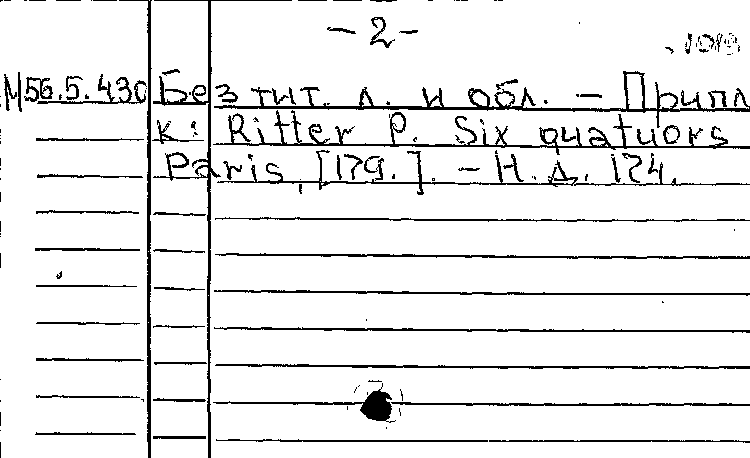 - 2 -
М56.5.430 Без тит. л. и обл. - Припл
к: Ritter P. Six quatuors
Paris, [179.]. - Н.д. 124.